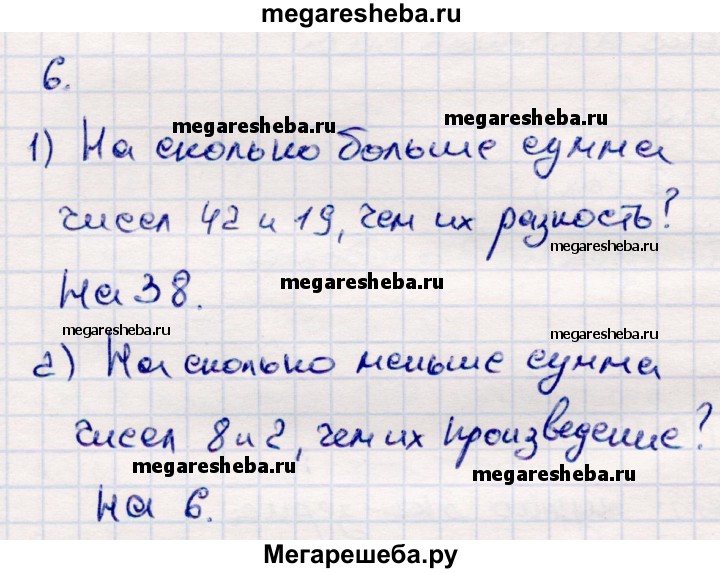 megaresheba.ru
6.
megaresheba.ru
megaresheba.ru
1) На сколько больше сумма
чисел 42 и 19, чем их разность?
megaresheba.ru
megaresheba.ru
На 38.
megaresheba.ru
megaresheba.ru
2) На сколько меньше сумма
чисел 8 и 2, чем их произведение?
megaresheba.ru
megaresheba.ru
На 6.
Мегарешеба.ру